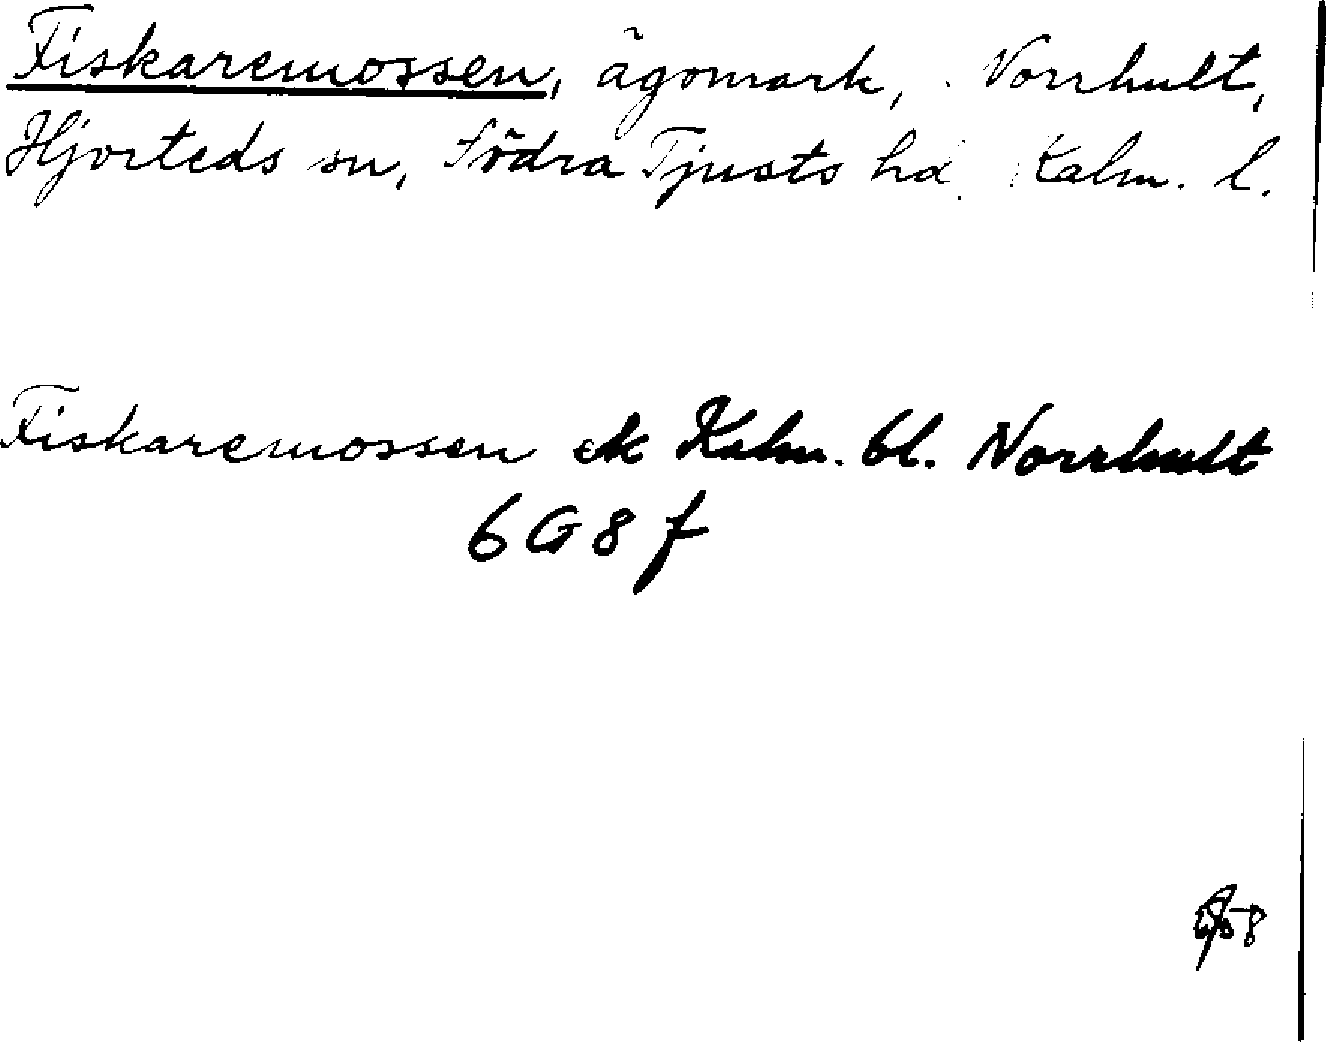 Fiskaremossen, ägomark, Norrhult,
Hjorteds sn, Södra Tjusts hd. Kalm. l.
Fiskaremossen ek Kalm. bl. Norrhult
6G8f